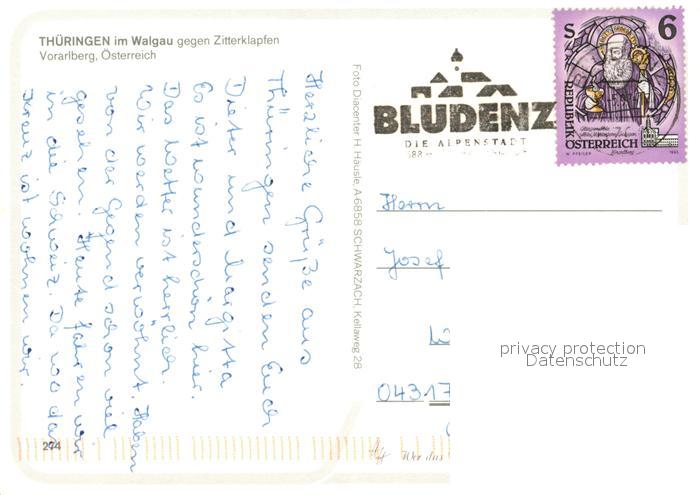 THÜRINGEN im Walgau gegen Zitterklapfen
Vorarlberg, Österreich
Herzliche Grüße aus
Thüringen senden Euch
Dieter und Margitta
Es ist wunderschön hier.
Das Wetter ist herrlich.
Wir werden verwöhnt. Haben
von der Gegend schon viel
gesehen. Heute fahren wir
in die Schweiz. Da wo das
Kreuz ist wohnen wir.
274
Foto Diacenter H. Hausle, A-6858 SCHWARZACH, Kellaweg 28
BLUDENZ
DIE ALPENSTADT
S 6
REPUBLIK
ÖSTERREICH
Herrn
Josef
0431
privacy protection
Datenschutz